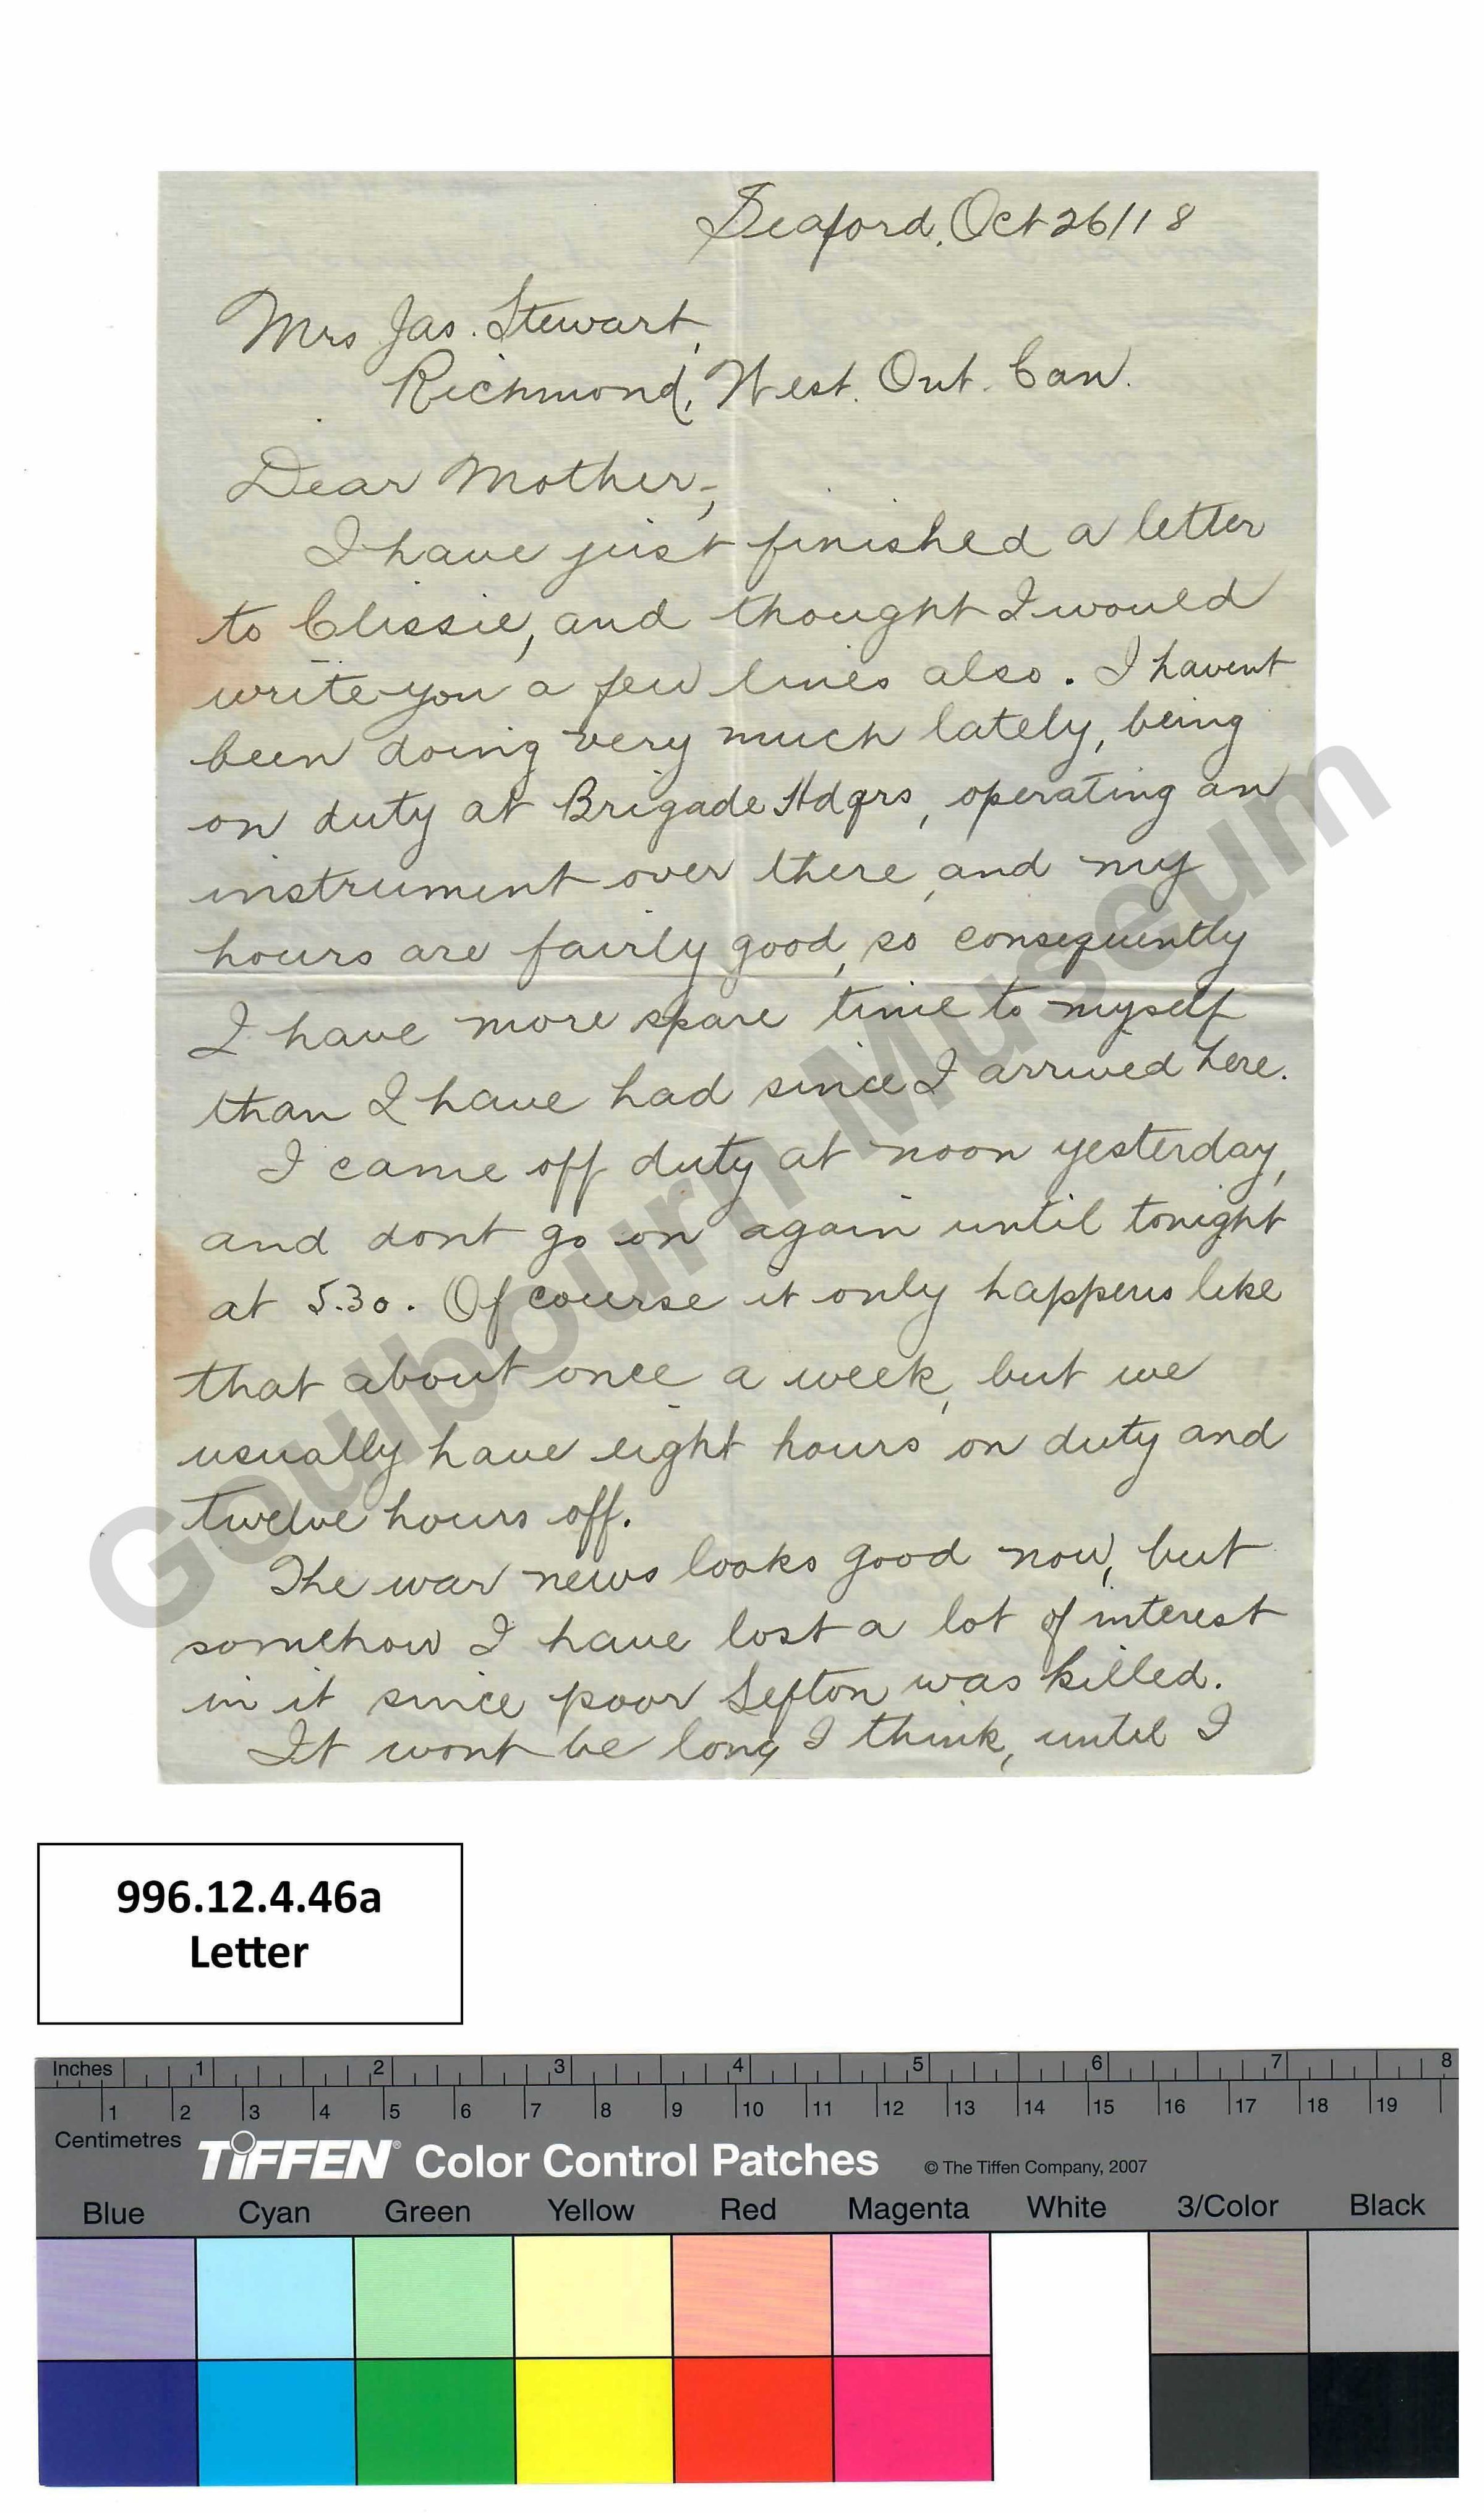 Seaford, Oct 26/18
Mrs Jas. Stewart,
Richmond, West. Ont. Can.
Dear Mother,-
I have just finished a letter
to Clissie, and thought I would
write you a few lines also. I havent
been doing very much lately, being
on duty at Brigade Hdqrs, operating an
instrument over there, and my
hours are fairly good, so consequently
I have more spare time to myself
than I have had since I arrived here.
I came off duty at noon yesterday,
and dont go on again until tonight
at 5.30. Of course it only happens like
that about once a week, but we
usually have eight hours on duty and
twelve hours off.
The war news looks good now, but
somehow I have lost a lot of interest
in it since poor Sefton was killed.
It wont be long I think, until I
Goulbourn Museum
996.12.4.46a
Letter
Inches 1 2 3 4 5 6 7 8
1 2 3 4 5 6 7 8 9 10 11 12 13 14 15 16 17 18 19
Centimetres
TIFFEN® Color Control Patches © The Tiffen Company, 2007
Blue Cyan Green Yellow Red Magenta White 3/Color Black